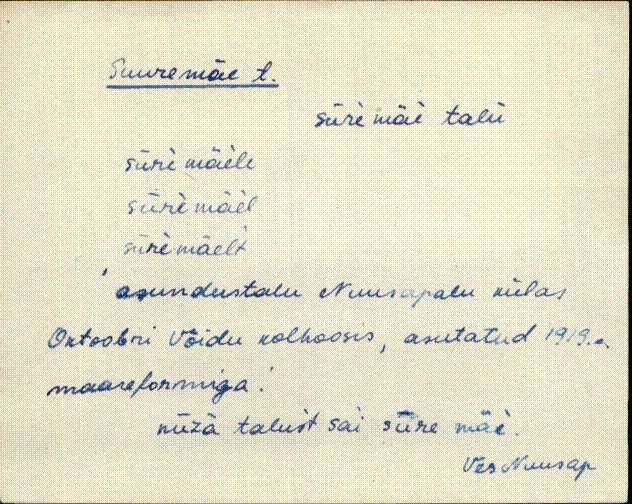 Suuremäe t.
sūrè mäè talū
sūrè mäèle
sūrè mäèl
sūrè mäelt
'asundustalu Nuusapalu külas
Oktoobri Võidu kolhoosis, asutatud 1919.a.
maareformiga'.
nūzā talust sai sūre mäè.
Ves Nuusap